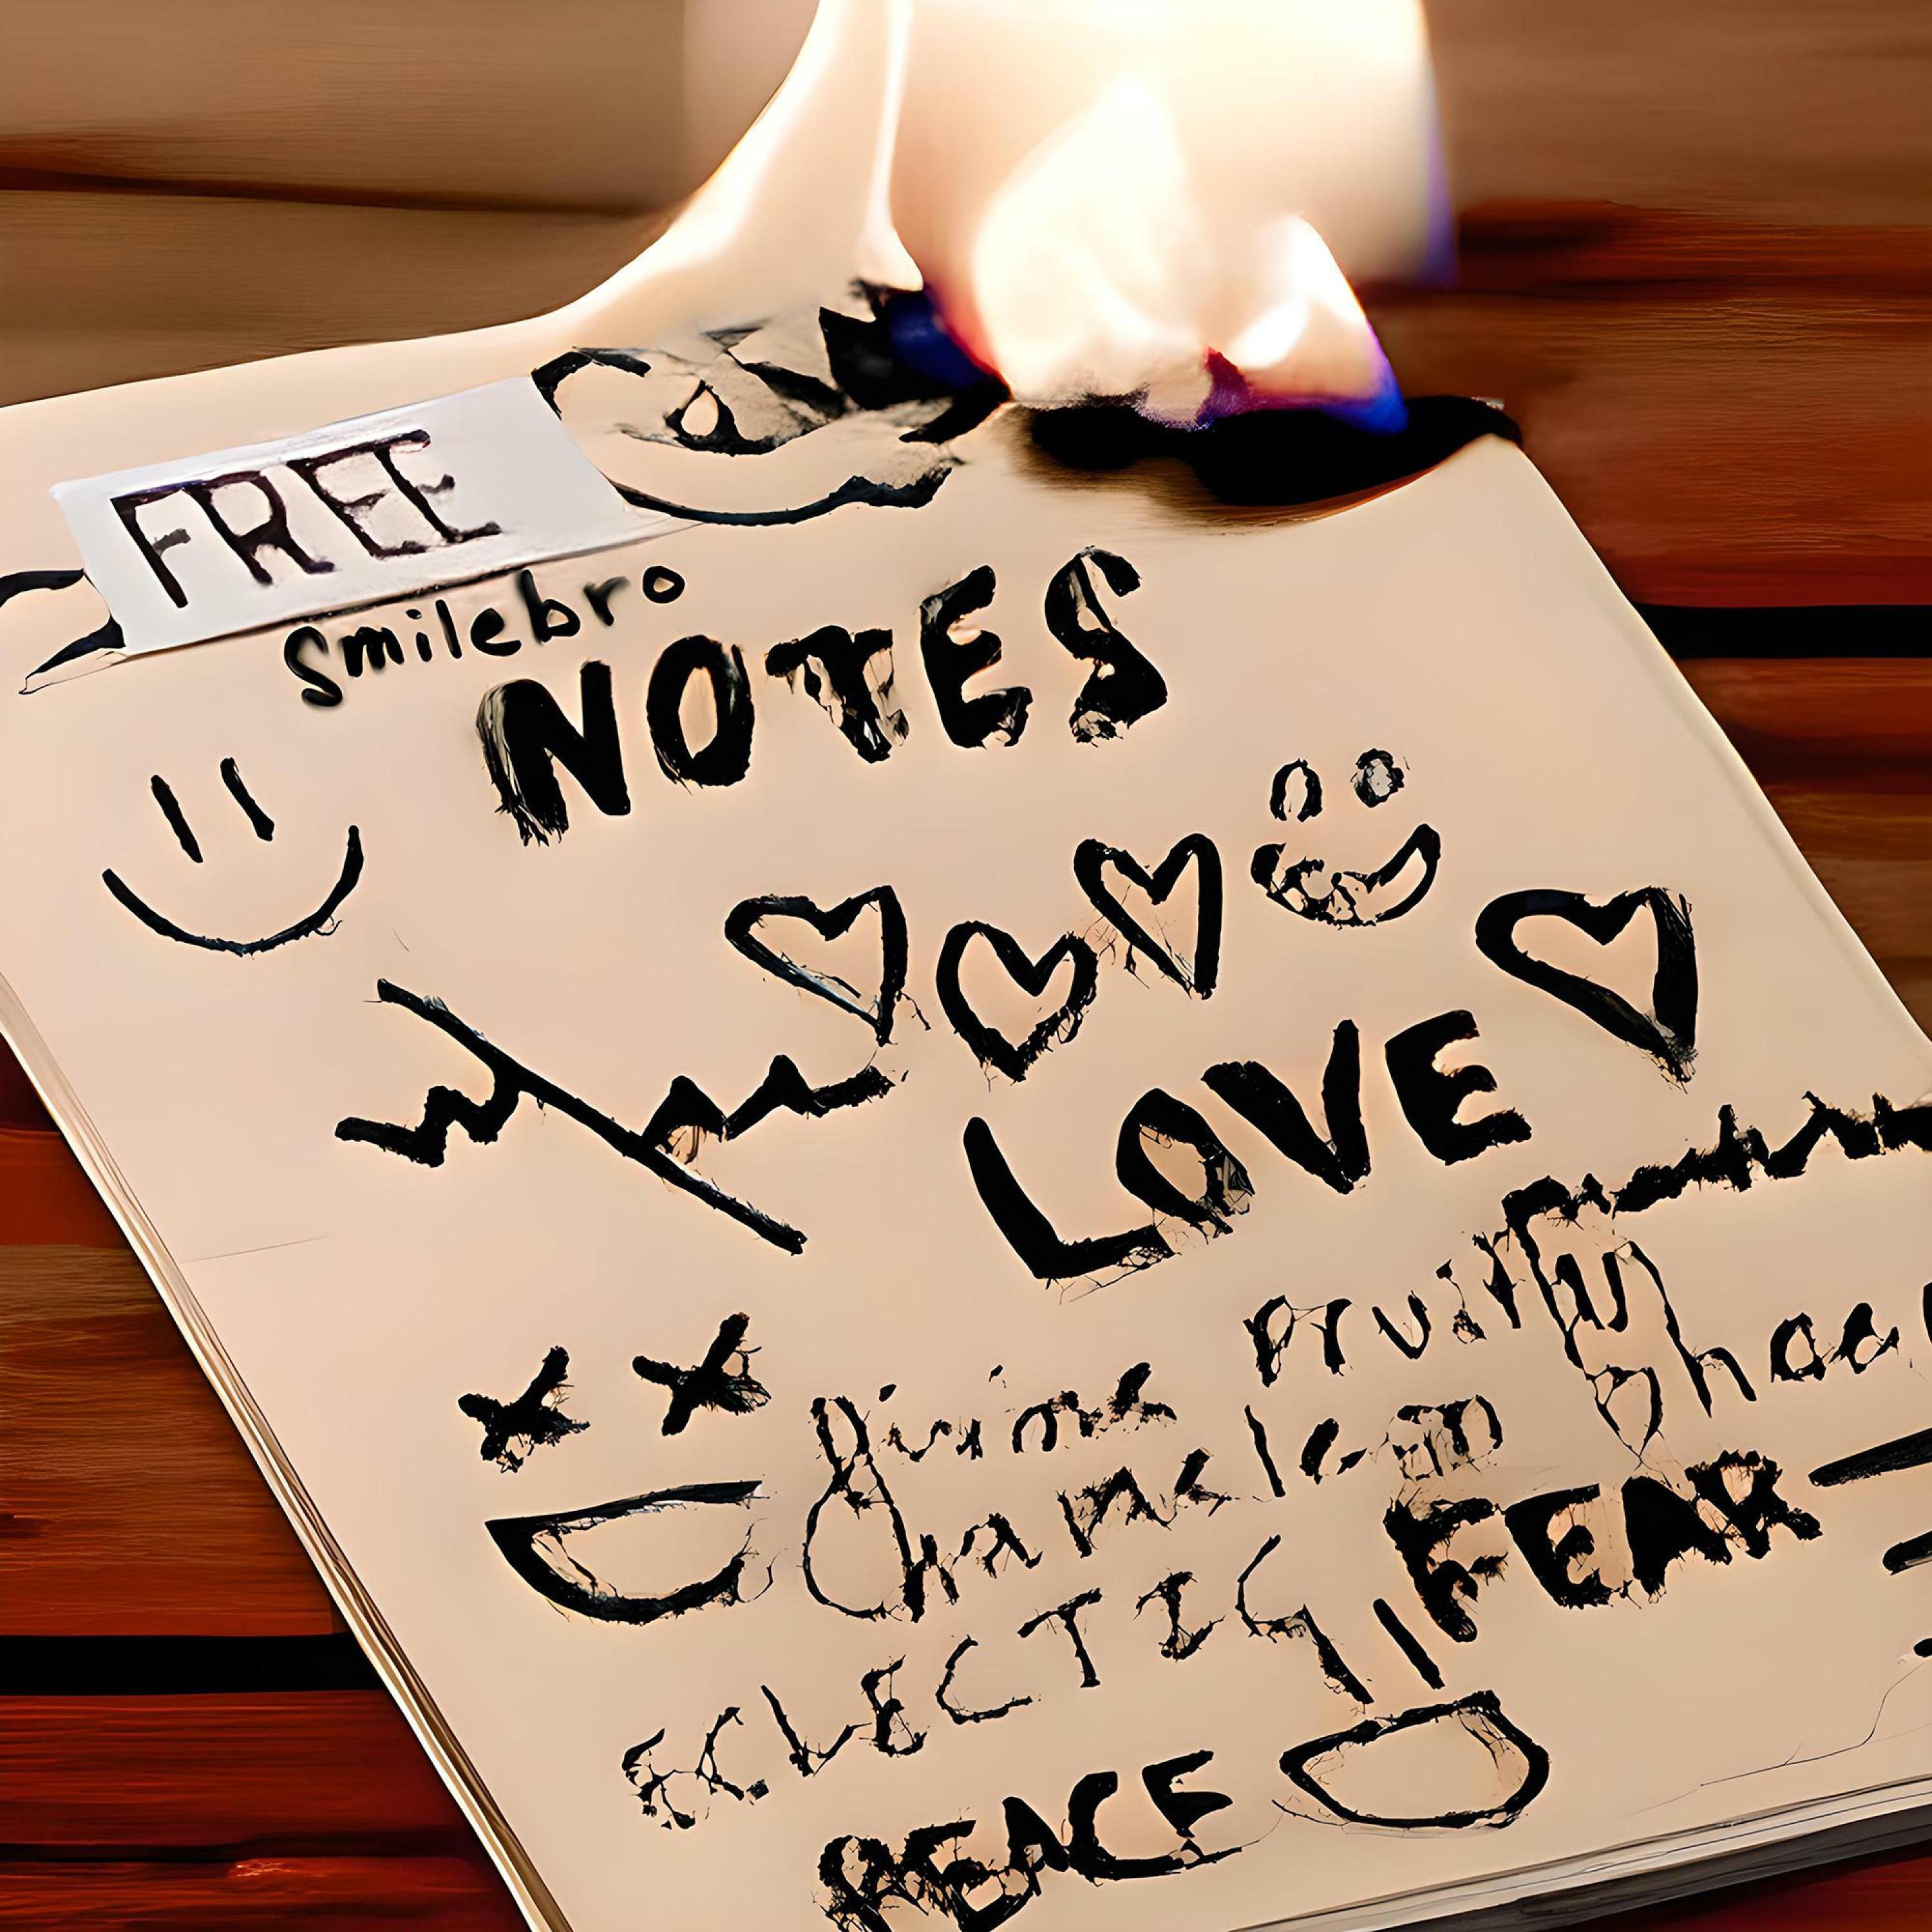 FREE
smilebro
NOTES
LOVE
Divine
Chameleon
FEAR
ECLECTIC
PEACE